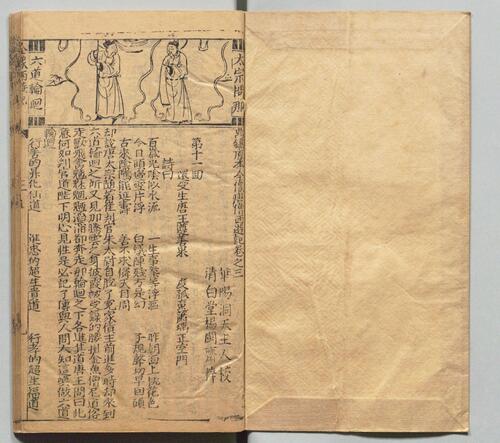 太宗問判
六道輪迴
西遊記卷之三
華陽洞天主人校
清白堂楊閩齋梓
第十一回
還受生唐王遵善果 度孤魂蕭瑀正空門
詩曰
百歲光陰似水流 一生事業等浮漚 昨朝面上桃花色
今日頭邊雪片浮 白蟻陣殘方是幻 子規聲切早回頭
古來陰隲能延壽 善不求憐天自周
却說唐太宗隨着崔判官朱太尉自脫了冤家債主前進多時却來到
六道輪迴之所又見那騰雲的身披霞帔受籙的腰掛金魚僧尼道俗
走獸飛禽魑魅魍魎滔滔都奔走那輪迴之下各進其道唐王問曰此
意何如判官道陛下明心見性是必記了傳與人間人知這喚做六道
輪迴
行善的昇化仙道 進忠的超生貴道 行孝的超生福道